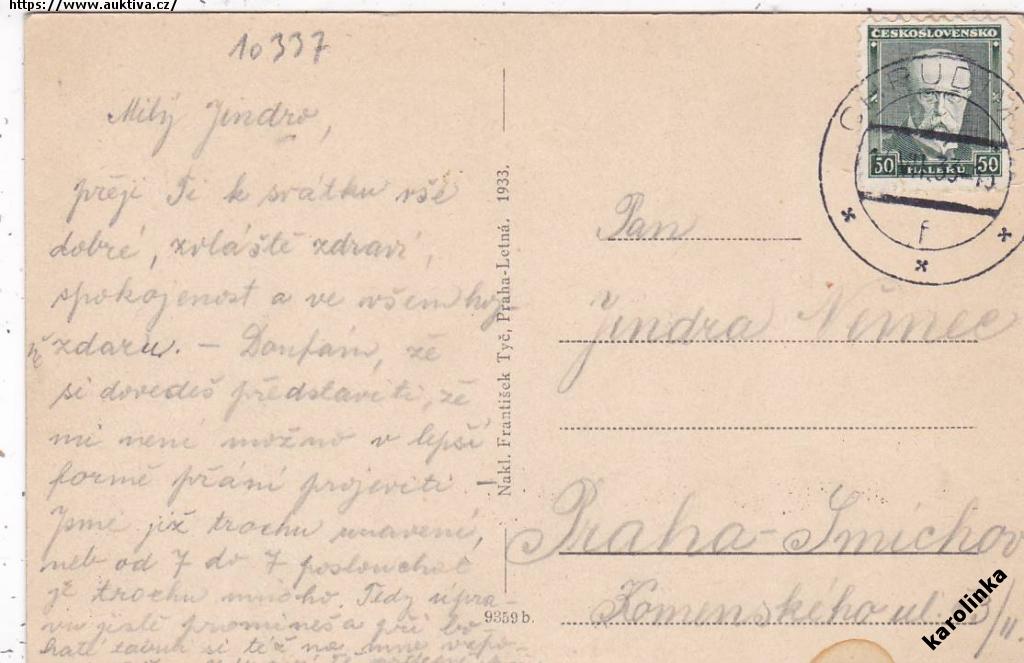 https://www.auktiva.cz/
10337
Milý Jindro,
přeji Ti k svátku vše
dobré, zvláště zdraví,
spokojenost a ve všem hoj
ně zdaru. – Doufám, že
si dovedeš představiti, že
mi není možno v lepší
formě přání projeviti. –
Jsme již trochu unaveni,
neb od 7 do 7 poslouchat
je trochu mnoho. Tedy úpra-
vu jistě promineš a při bo
haté tabuli si též na mne vzpo-
Nakl. František Tyč, Praha-Letná. 1933.
9359 b.
ČESKOSLOVENSKO
50 HALÉŘŮ 50
CHRUDIM
f
Pan
Jindra Němec
Praha-Smíchov
Komenského ul. 3/II.
karolinka